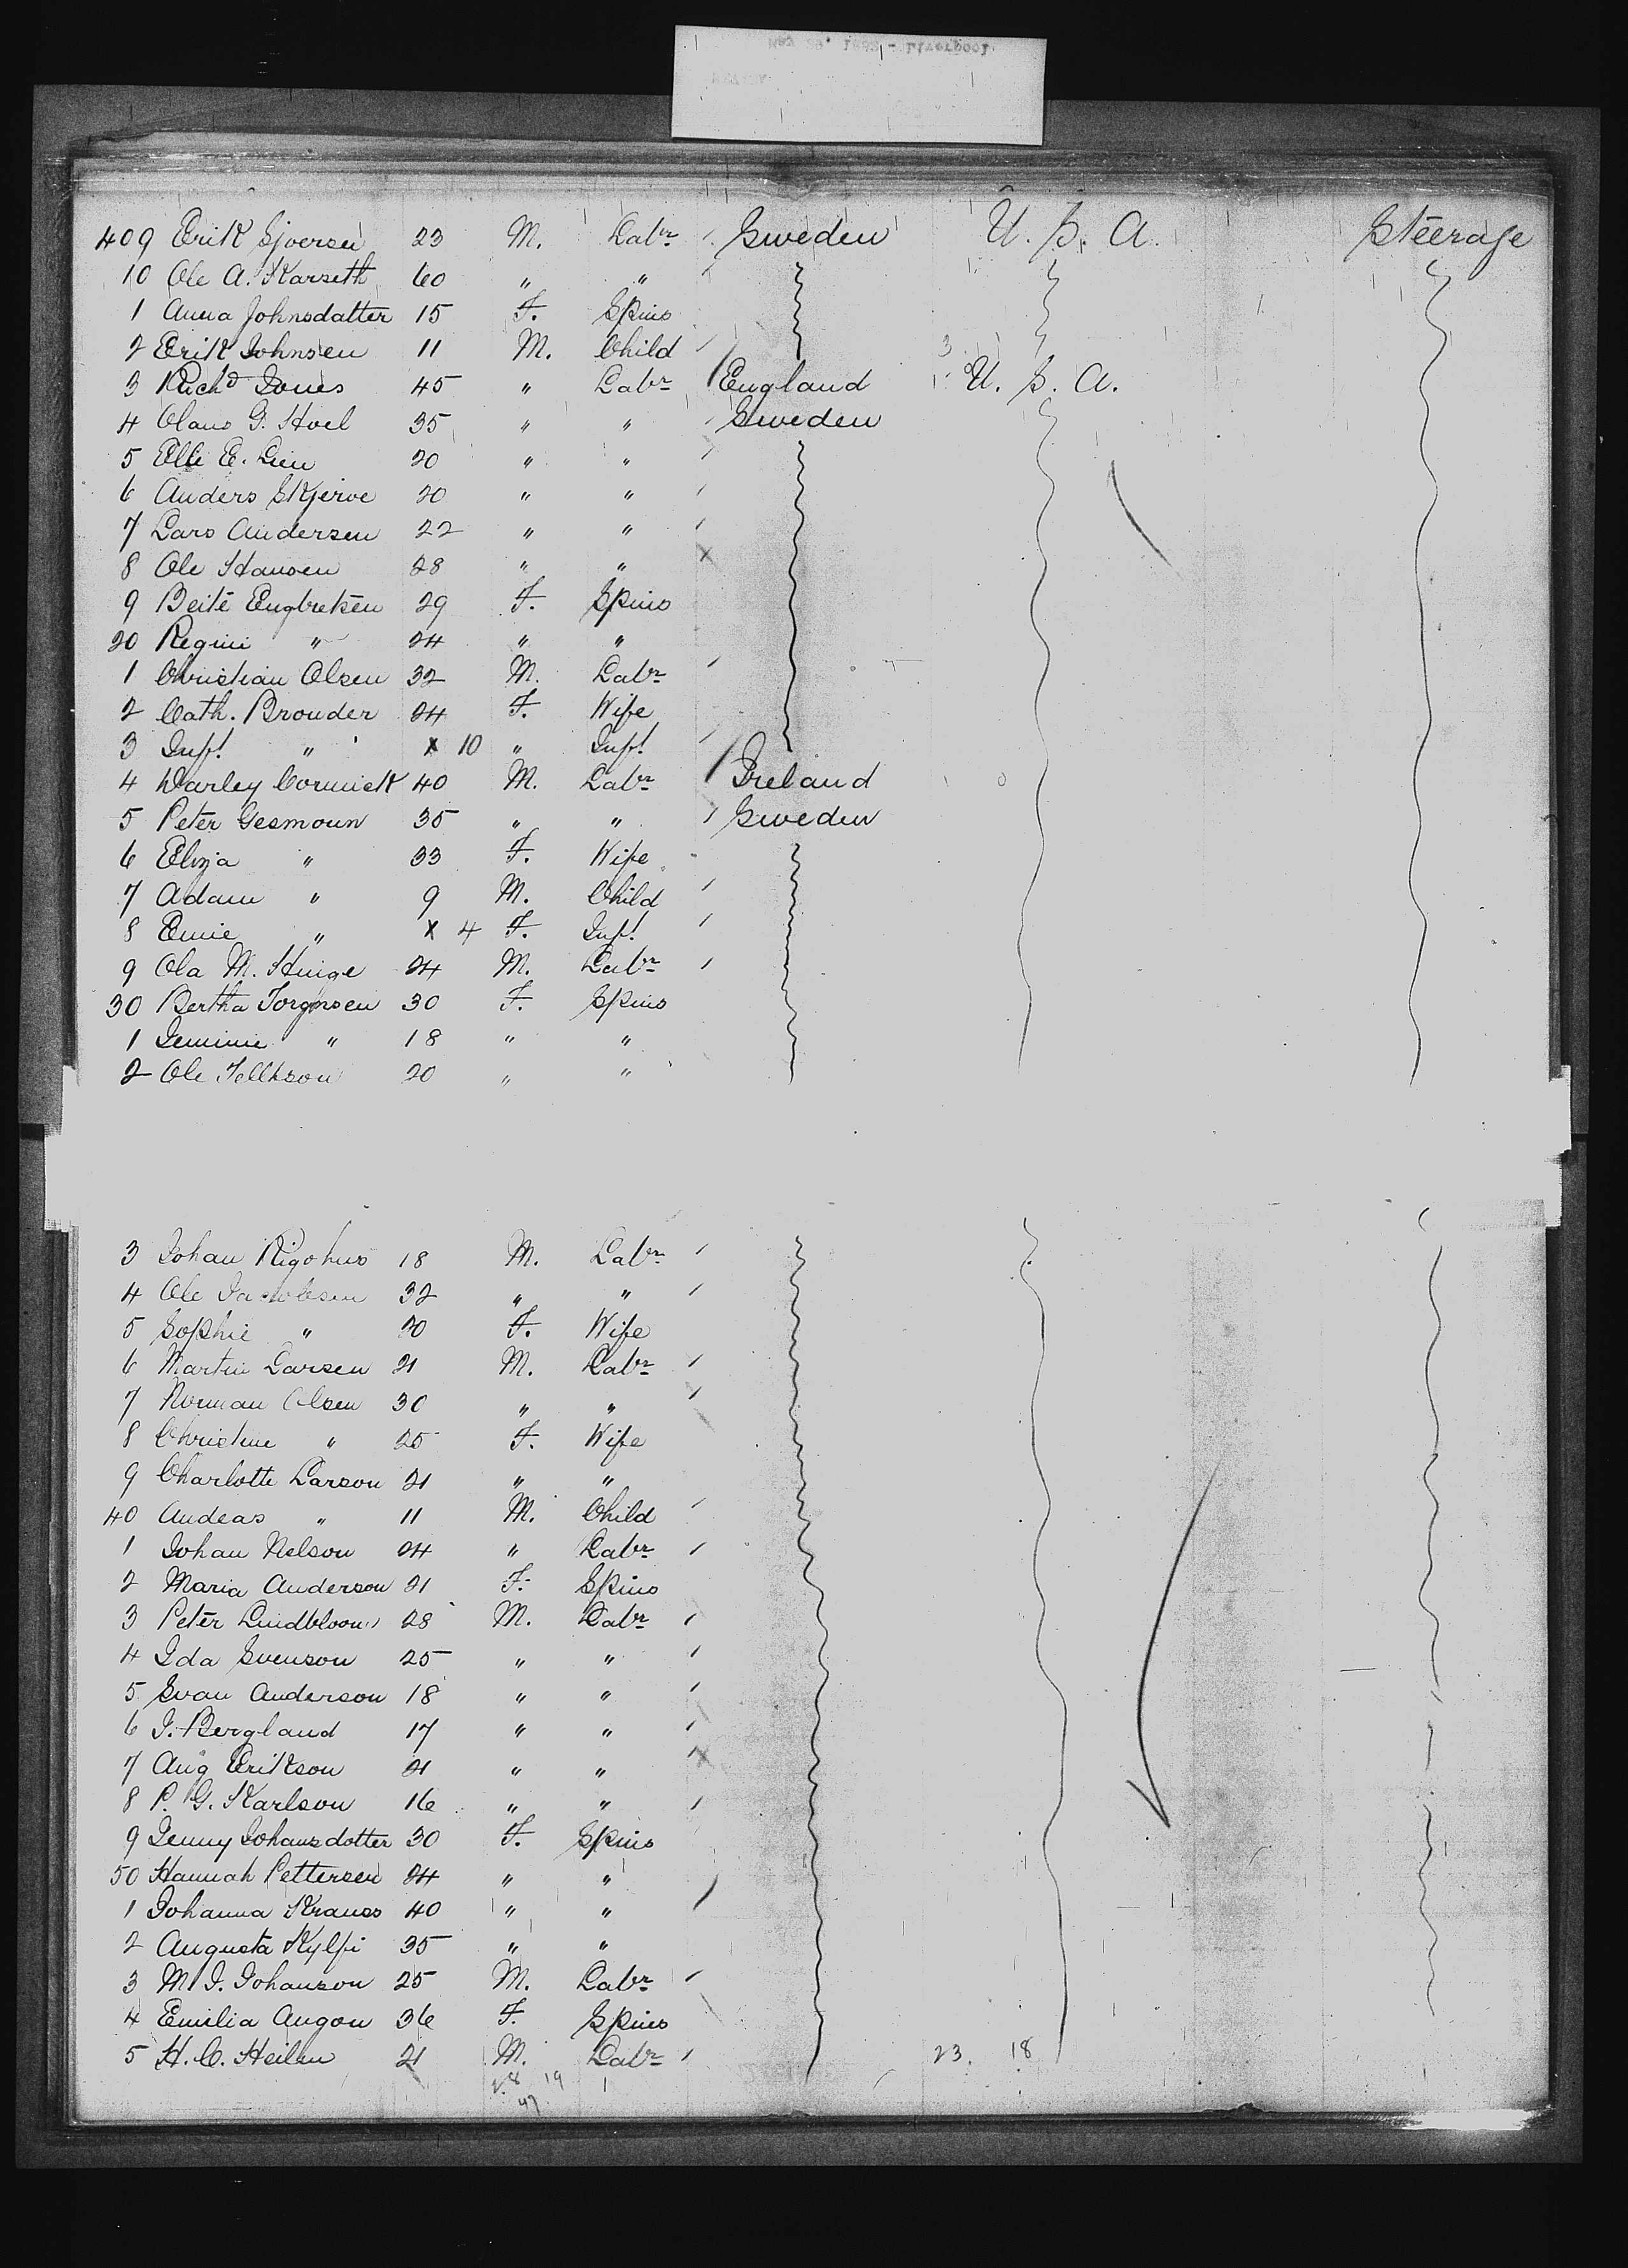 409 Erik Sjversen 23 M. Labr Sweden U. S. A. Steerage
10 Ole A. Karseth 60 " "
1 Anna Johnsdatter 15 F. Spins
2 Erik Johnsen 11 M. Child
3 Richd Jones 45 " Labr England U. S. A.
4 Olaus G. Hoel 35 " " Sweden
5 Elli E. Lien 20 " "
6 Anders Skjerve 20 " "
7 Lars Andersen 22 " "
8 Ole Hansen 28 " "
9 Beite Engbretsen 29 F. Spins
20 Regini " 24 " "
1 Christian Olsen 32 M. Labr
2 Cath. Brouder 24 F. Wife
3 Inft " x 10 " Inft
4 Darley Cormick 40 M. Labr Ireland
5 Peter Gesmoun 35 " " Sweden
6 Eliza " 33 F. Wife
7 Adam " 9 M. Child
8 Emie " x 4 F. Inft
9 Ola M. Huige 24 M. Labr
30 Bertha Torgersen 30 F. Spins
1 Jeminie " 18 " "
2 Ole 20 " "
3 Johan Rigohus 18 M. Labr
4 Ole Jacobsen 32 " "
5 Sophie " 20 F. Wife
6 Martin Larsen 21 M. Labr
7 Norman Olsen 30 " "
8 Christine " 25 F. Wife
9 Charlotte Larson 21 " "
40 Andeas " 11 M. Child
1 Johan Nelson 24 " Labr
2 Maria Anderson 21 F. Spins
3 Peter Lindbloom 28 M. Labr
4 Ida Svenson 25 " "
5 Svan Anderson 18 " "
6 J. Bergland 17 " "
7 Aug Erikson 21 " "
8 P. G. Karlson 16 " "
9 Jenny Johansdotter 30 F. Spins
50 Hannah Pettersen 24 " "
1 Johanna Krauss 40 " "
2 Augusta Kylfi 35 " "
3 M. J. Johanson 25 M. Labr
4 Emilia Angon 36 F. Spins
5 H. C. Heilen 21 M. Labr 23. 18
28 19 1
47